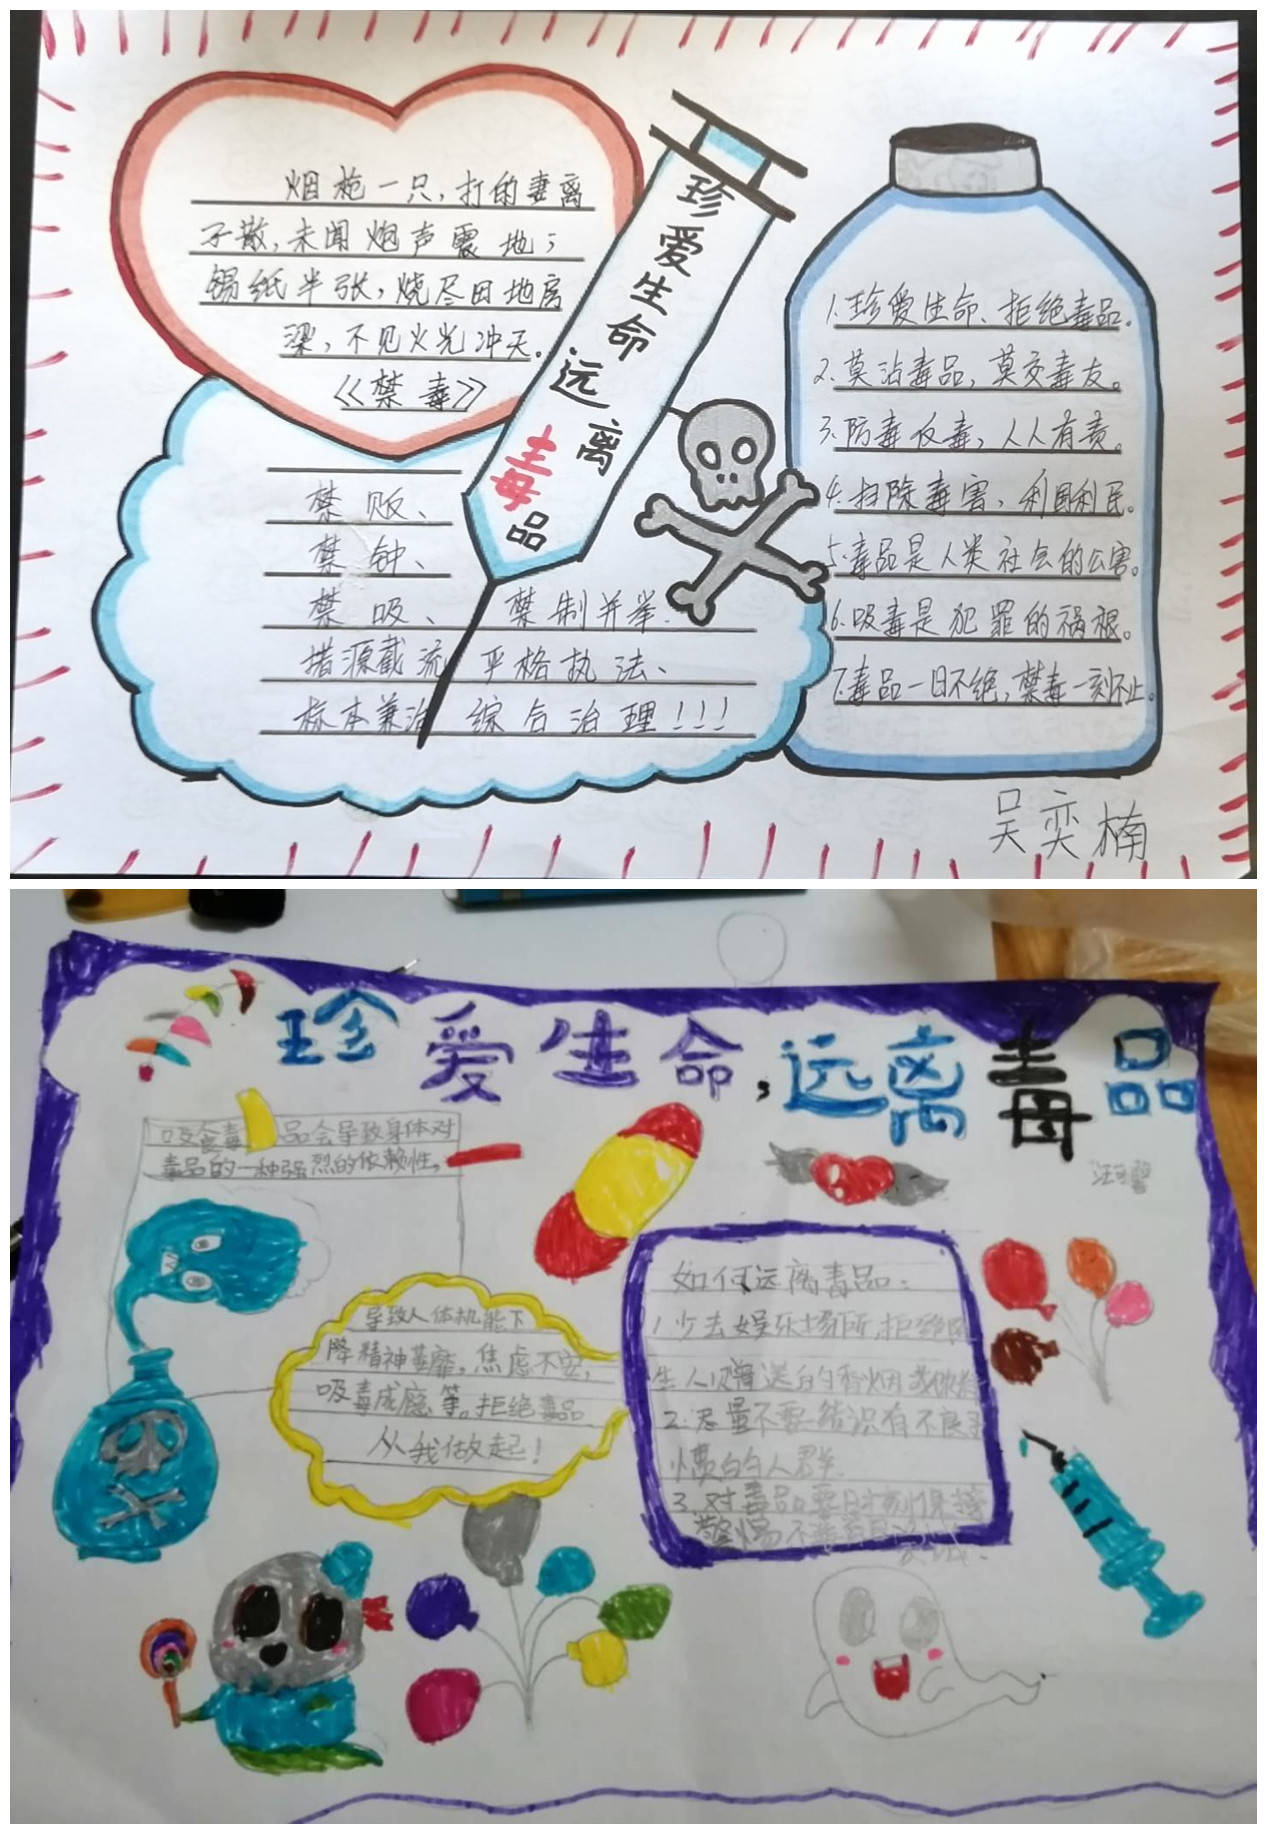 烟枪一只，打的妻离
子散，未闻炮声震地；
锡纸半张，烧尽田地房
梁，不见火光冲天。
《禁毒》
珍爱生命远离毒品
禁贩、
禁钟、
禁吸、禁制并举.
措源截流 严格执法、
标本兼治 综合治理!!!
1.珍爱生命、拒绝毒品。
2.莫沾毒品，莫交毒友。
3.防毒反毒，人人有责。
4.扫除毒害，利国利民。
5.毒品是人类社会的公害。
6.吸毒是犯罪的祸根。
7.毒品一日不绝，禁毒一刻不止。
吴奕楠
珍爱生命，远离毒品
吸食毒品会导致身体对
毒品的一种强烈的依赖性，
导致人体机能下
降精神萎靡，焦虑不安，
吸毒成瘾等。拒绝毒品
从我做起！
如何远离毒品：
1少去娱乐场所，拒绝陌
生人赠送的香烟或饮料
2.尽量不要结识有不良习
惯的人群.
3.对毒品要时刻保持
警惕